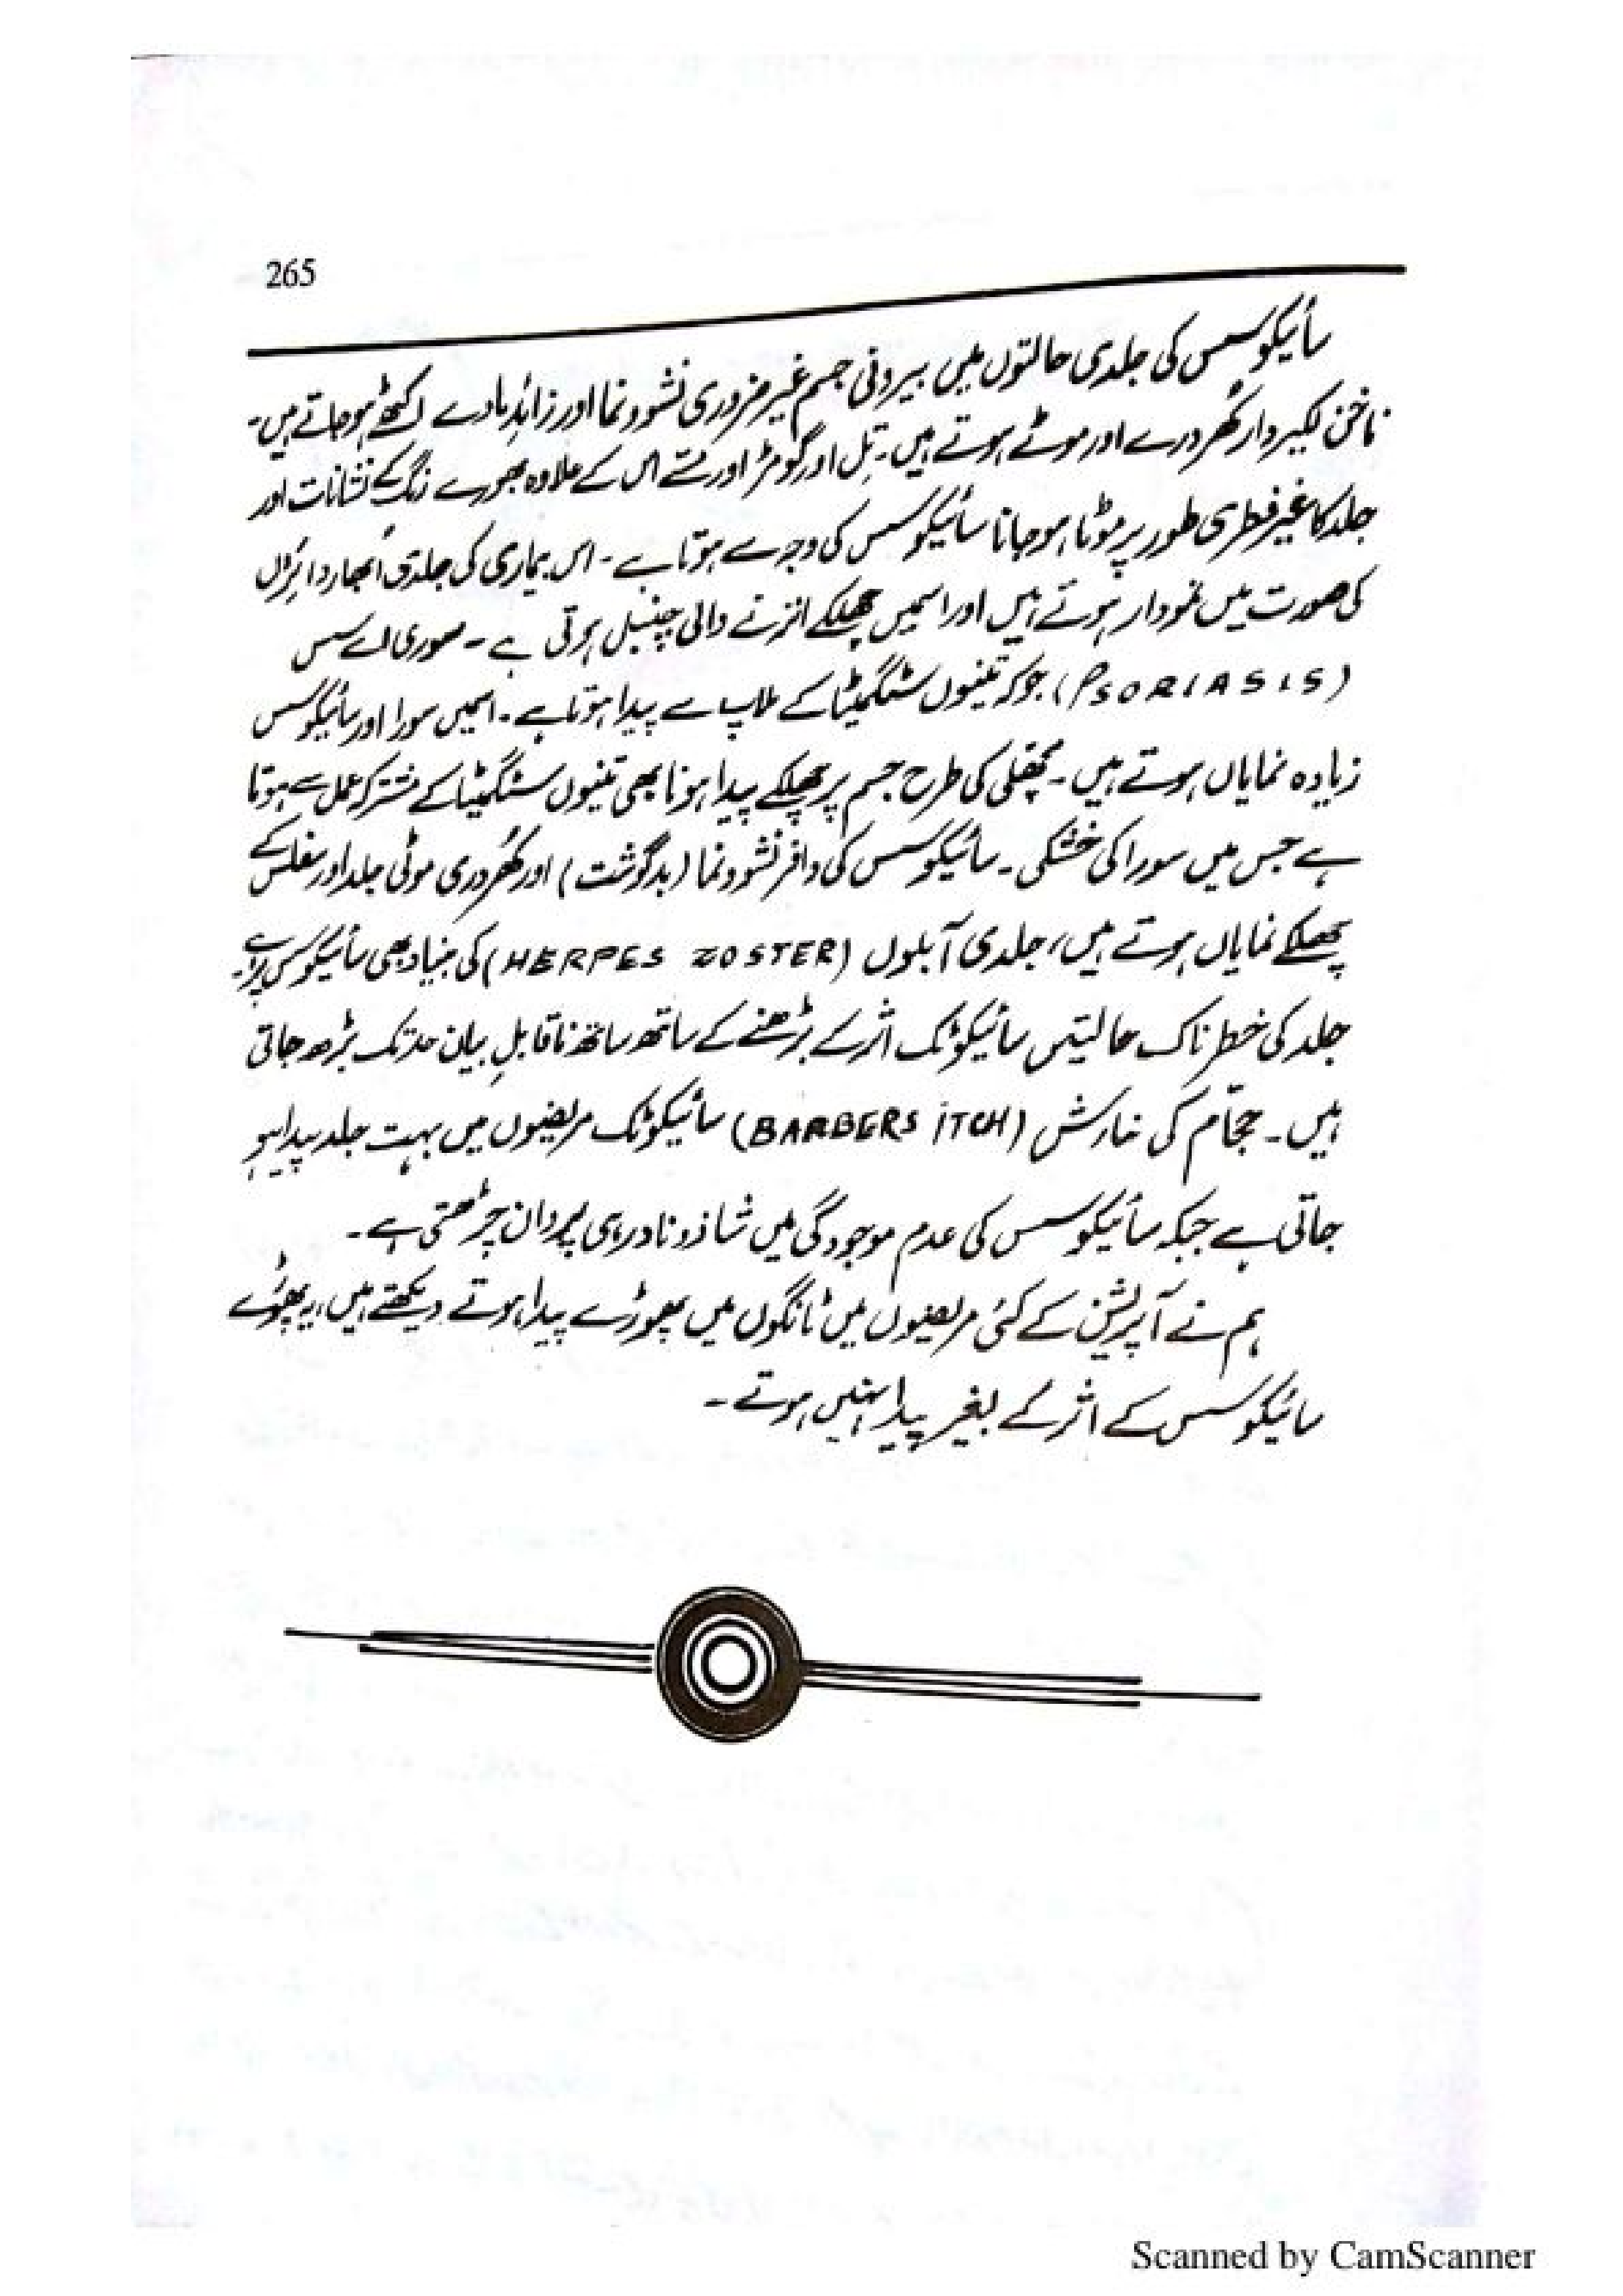 265
سائیکوسس کی جلدی حالتوں میں بیرونی جسم غیر ضروری نشوونما اور زائد مادے اکٹھے ہو جاتے ہیں۔
ناخن لکیر دار کُھردرے اور موٹے ہوتے ہیں۔ تِل اور گومڑ اور مسّے اس کے علاوہ بھورے رنگ کے نشانات اور
جلد کا غیر فطری طور پر موٹا ہو جانا سائیکوسس کی وجہ سے ہوتا ہے۔ اس بیماری کی جلدی اُبھار دائروں
کی صورت میں نمودار ہوتے ہیں اور اسمیں چھلکے اترنے والی چنبل ہوتی ہے۔ سوری اے سس
(PSORIASIS) جو کہ تینوں سٹگمیٹا کے ملاپ سے پیدا ہوتا ہے۔ اسمیں سورا اور سائیکوسس
زیادہ نمایاں ہوتے ہیں۔ مچھلی کی طرح جسم پر چھلکے پیدا ہونا بھی تینوں سٹگمیٹا کے مشترکہ عمل سے ہوتا
ہے جس میں سورا کی خشکی۔ سائیکوسس کی وافر نشوونما (بدگوشت) اور کُھردری موٹی جلد اور سفلس کے
چھلکے نمایاں ہوتے ہیں، جلدی آبلوں (HERPES ZOSTER) کی بنیاد بھی سائیکوسس پر ہے۔
جلد کی خطرناک حالیتں سائیکوٹک اثر کے بڑھنے کے ساتھ ساتھ ناقابلِ بیان حد تک بڑھ جاتی
ہیں۔ حجّام کی خارش (BARBERS ITCH) سائیکوٹک مریضوں میں بہت جلد پیدا ہو
جاتی ہے جبکہ سائیکوسس کی عدم موجودگی میں شاذ و نادر ہی پروان چڑھتی ہے۔
ہم نے آپریشن کے کئی مریضوں میں ٹانگوں میں پھوڑے پیدا ہوتے دیکھتے ہیں، یہ پھوڑے
سائیکوسس کے اثر کے بغیر پیدا نہیں ہوتے۔
Scanned by CamScanner